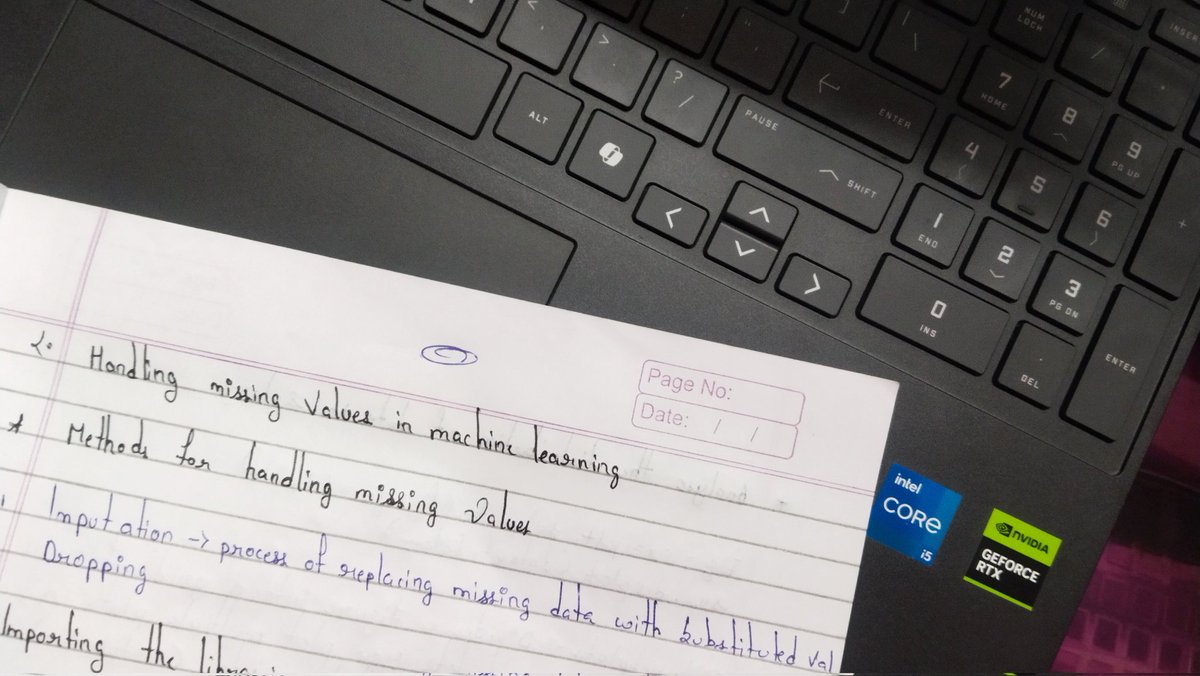 NUM LOCK
INSER
< ,
> .
? /
| \
]
/
ALT
PAUSE
SHIFT
ENTER
7 HOME
8
9 PG UP
4
5
6
+
1 END
2
3 PG DN
0 INS
. DEL
ENTER
Page No:
Date: / /
2. Handling missing Values in machine learning
* Methods for handling missing Values
Imputation -> process of replacing missing data with substituted val
Dropping
Importing the
intel
CORE
i5
NVIDIA
GEFORCE
RTX